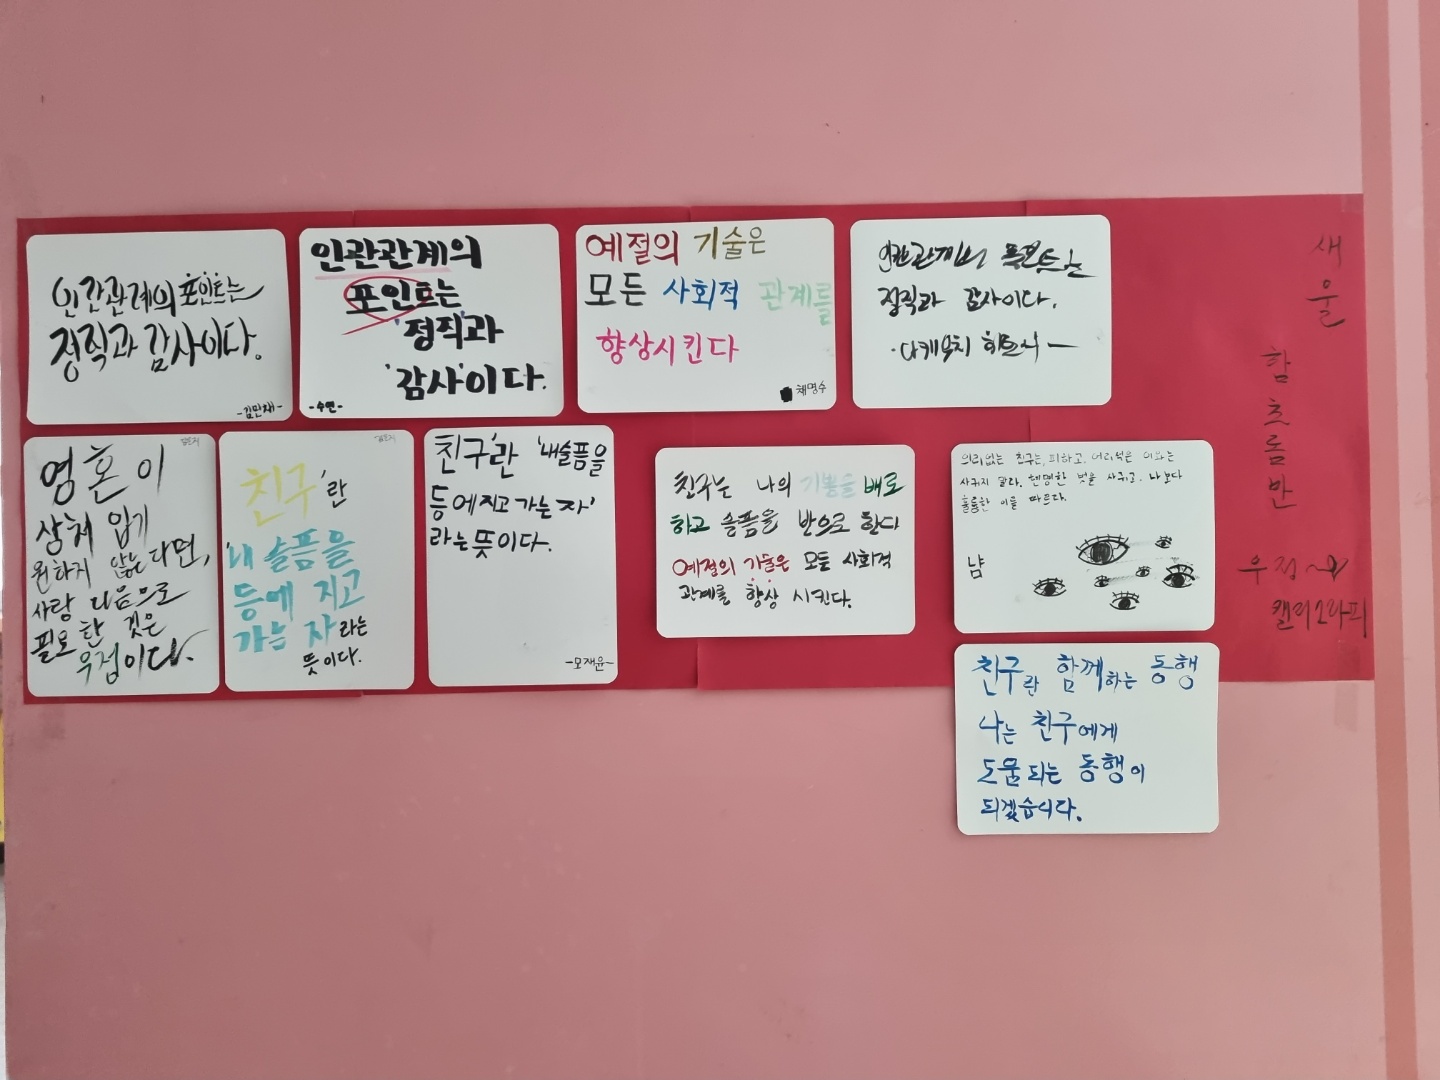 인간관계의 포인트는
정직과 감사이다.
-김민채-
인관관계의
포인트는
'정직'과
'감사'이다.
-수연-
예절의 기술은
모든 사회적 관계를
향상시킨다
채명수
포인트는
정직과 감사이다.
영혼이
상처 입기
원하지 않는다면,
사랑 다음으로
필요한 것은
우정이다.
친구'란
'내 슬픔을
등에 지고
가는 자'라는
뜻이다.
친구'란 '내슬픔을
등에지고 가는 자'
라는 뜻이다.
-모재윤-
친구는 나의 기쁨을 배로
하고 슬픔을 반으로 한다
예절의 기술은 모든 사회적
관계를 향상 시킨다.
의리없는 친구는, 피하고, 어리석은 이와는
사귀지 말라. 현명한 벗을 사귀고, 나보다
훌륭한 이를 따르다.
냠
친구란 함께하는 동행
나는 친구에게
도움되는 동행이
되겠습니다.
새울
함초롬반
우정~
캘리그라피